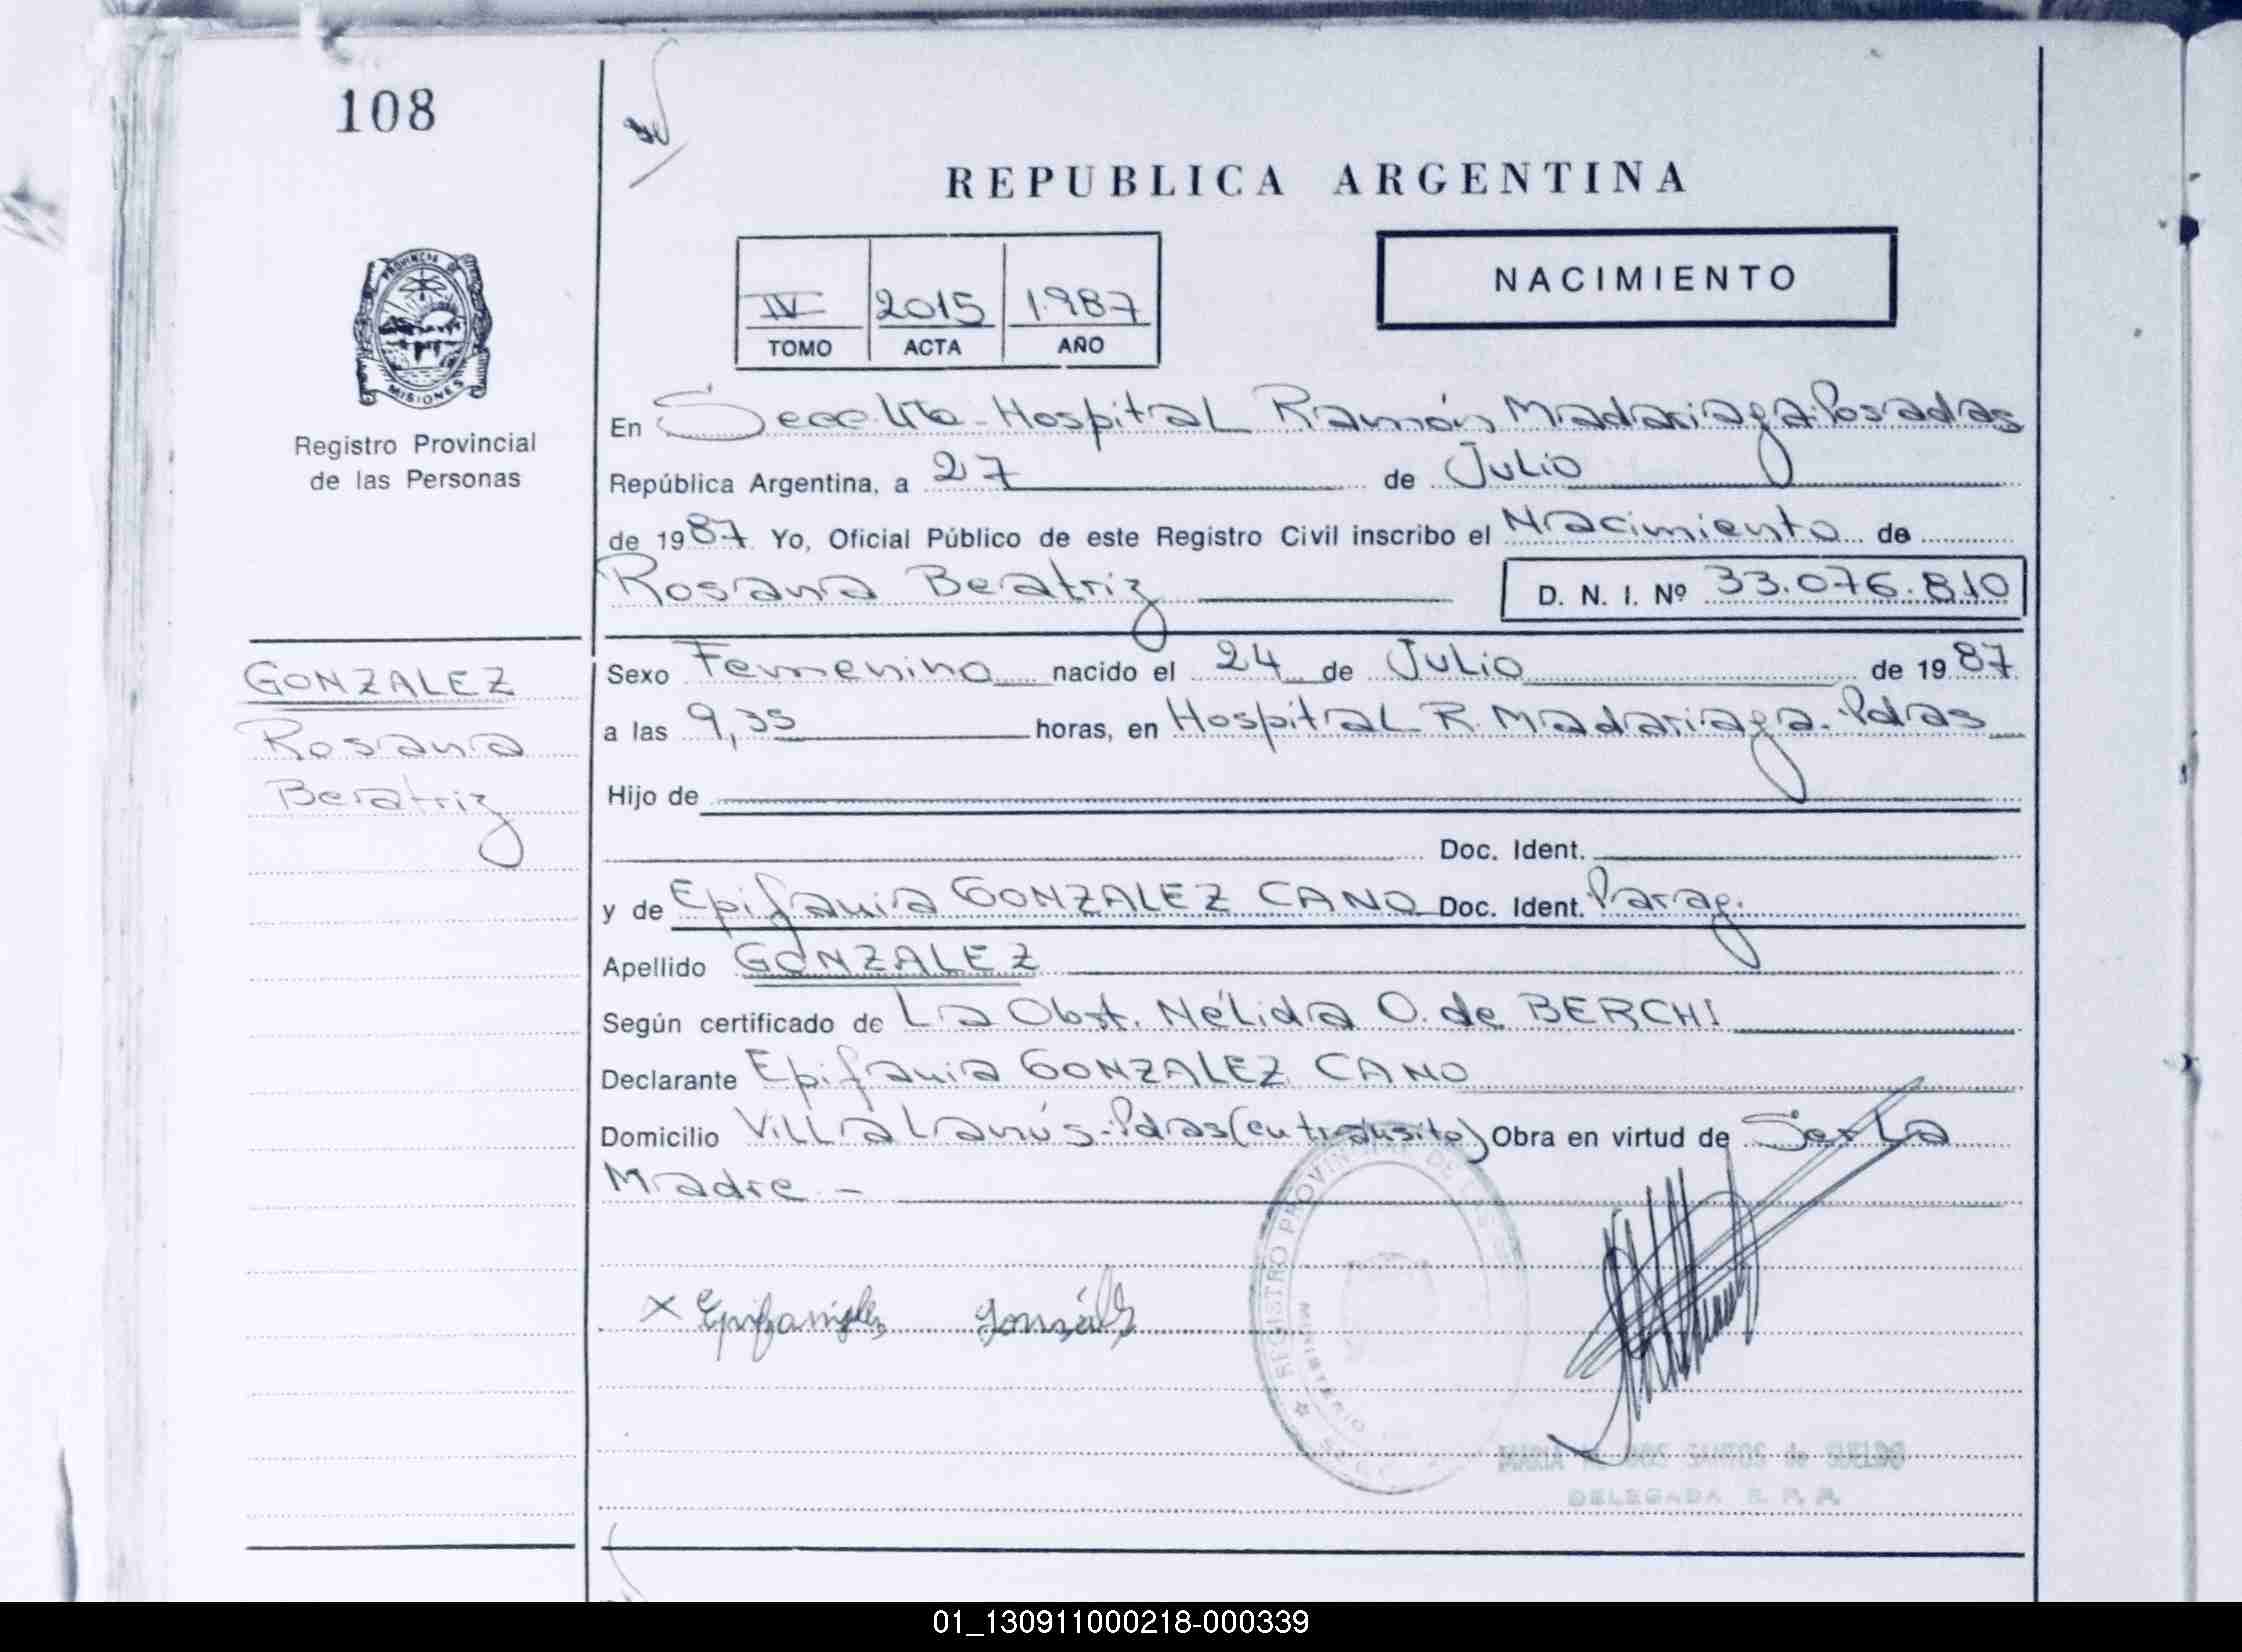 108
REPUBLICA ARGENTINA
NACIMIENTO
IV 2015 1987
TOMO ACTA AÑO
PROVINCIA DE MISIONES
Registro Provincial
de las Personas
En Secc. 4ta - Hospital Ramón Madariaga-Posadas
República Argentina, a 27 de Julio
de 1987. Yo, Oficial Público de este Registro Civil inscribo el Nacimiento de
Rosana Beatriz D. N. I. Nº 33.076.810
GONZALEZ
Rosana
Beatriz
Sexo Femenino nacido el 24 de Julio de 1987.
a las 9,35 horas, en Hospital R. Madariaga. Pdas
Hijo de
Doc. Ident.
y de Epifania GONZALEZ CANO Doc. Ident. Parag.
Apellido GONZALEZ
Según certificado de La Obst. Nélida O. de BERCHI
Declarante Epifania GONZALEZ CANO
Domicilio Villa Lanús-Pdas (en tránsito) Obra en virtud de Ser La
Madre -
REGISTRO PROVINCIAL DE
MINISTERIO
DOS SANTOS de
DELEGADA R. P. P.
01_130911000218-000339